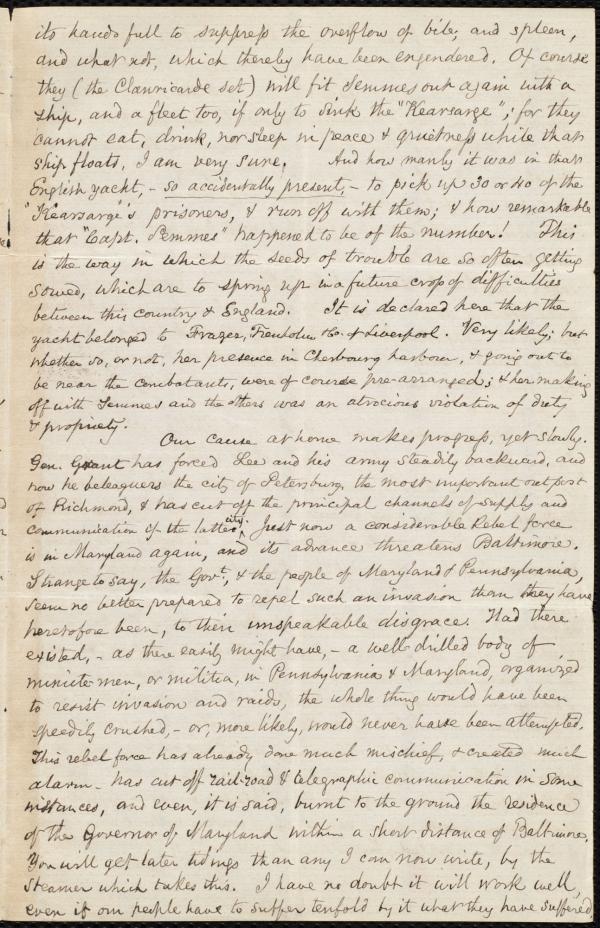 its hands full to suppress the overflow of bile, and spleen,
and what not, which thereby have been engendered. Of course
they (the Clanricarde set) will fit Semmes out again with a
ship, and a fleet too, if only to sink the "Kearsarge",; for they
cannot eat, drink, nor sleep in peace & quietness while that
ship floats, I am very sure. And how manly it was in that
English yacht, - so accidentally present, - to pick up 30 or 40 of the
"Kearsarge"'s prisoners, & run off with them; & how remarkable
that "Capt. Semmes" happened to be of the number! This
is the way in which the seeds of trouble are so often getting
sowed, which are to spring up in a future crop of difficulties
between this country & England. It is declared here that the
yacht belonged to Frazer, Trenholm & Co. of Liverpool. Very likely; but
whether so, or not, her presence in Cherbourg harbour, & going out to
be near the combatants, were of course pre-arranged; & her making
off with Semmes and the others was an atrocious violation of duty
& propriety.
Our cause at home makes progress, yet slowly.
Gen. Grant has forced Lee and his army steadily backward, and
now he beleaguers the city of Petersburg, the most important outpost
of Richmond, & has cut off the principal channels of supply and
communication of the latter city. Just now a considerable Rebel force
is in Maryland again, and its advance threatens Baltimore.
Strange to say, the Govt., & the people of Maryland & Pennsylvania,
seem no better prepared to repel such an invasion than they have
heretofore been, to their unspeakable disgrace. Had there
existed, - as there easily might have, - a well-drilled body of
minute-men, or militia, in Pennsylvania & Maryland, organized
to resist invasion and raids, the whole thing would have been
speedily crushed, - or, more likely, would never have been attempted.
This rebel force has already done much mischief, & created much
alarm - has cut off rail-road & telegraphic communication in some
instances, and even, it is said, burnt to the ground the residence
of the Governor of Maryland within a short distance of Baltimore.
You will get later tidings than any I can now write, by the
steamer which takes this. I have no doubt it will work well,
even if our people have to suffer tenfold by it what they have suffered,